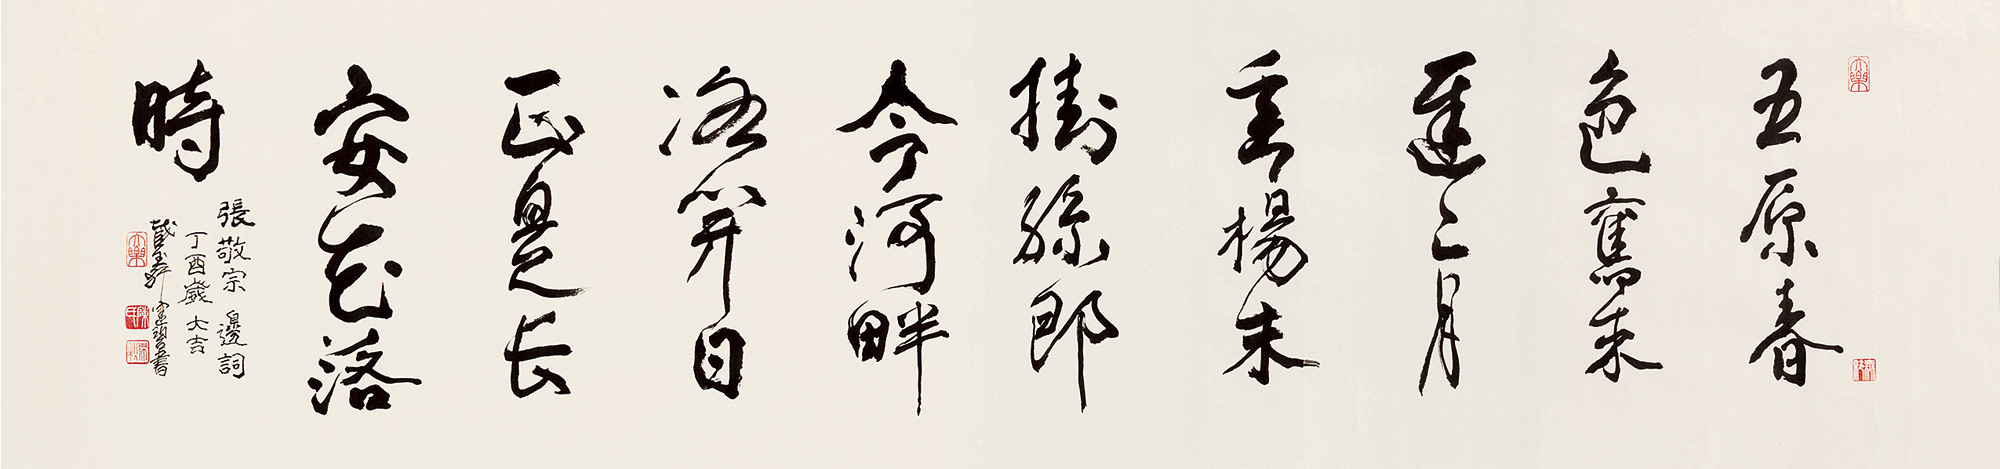 五原春
色舊来
遲二月
垂楊未
掛絲即
今河畔
冰開日
正是长
安花落
時
張敬宗 邊詞
丁酉歲 大吉
書